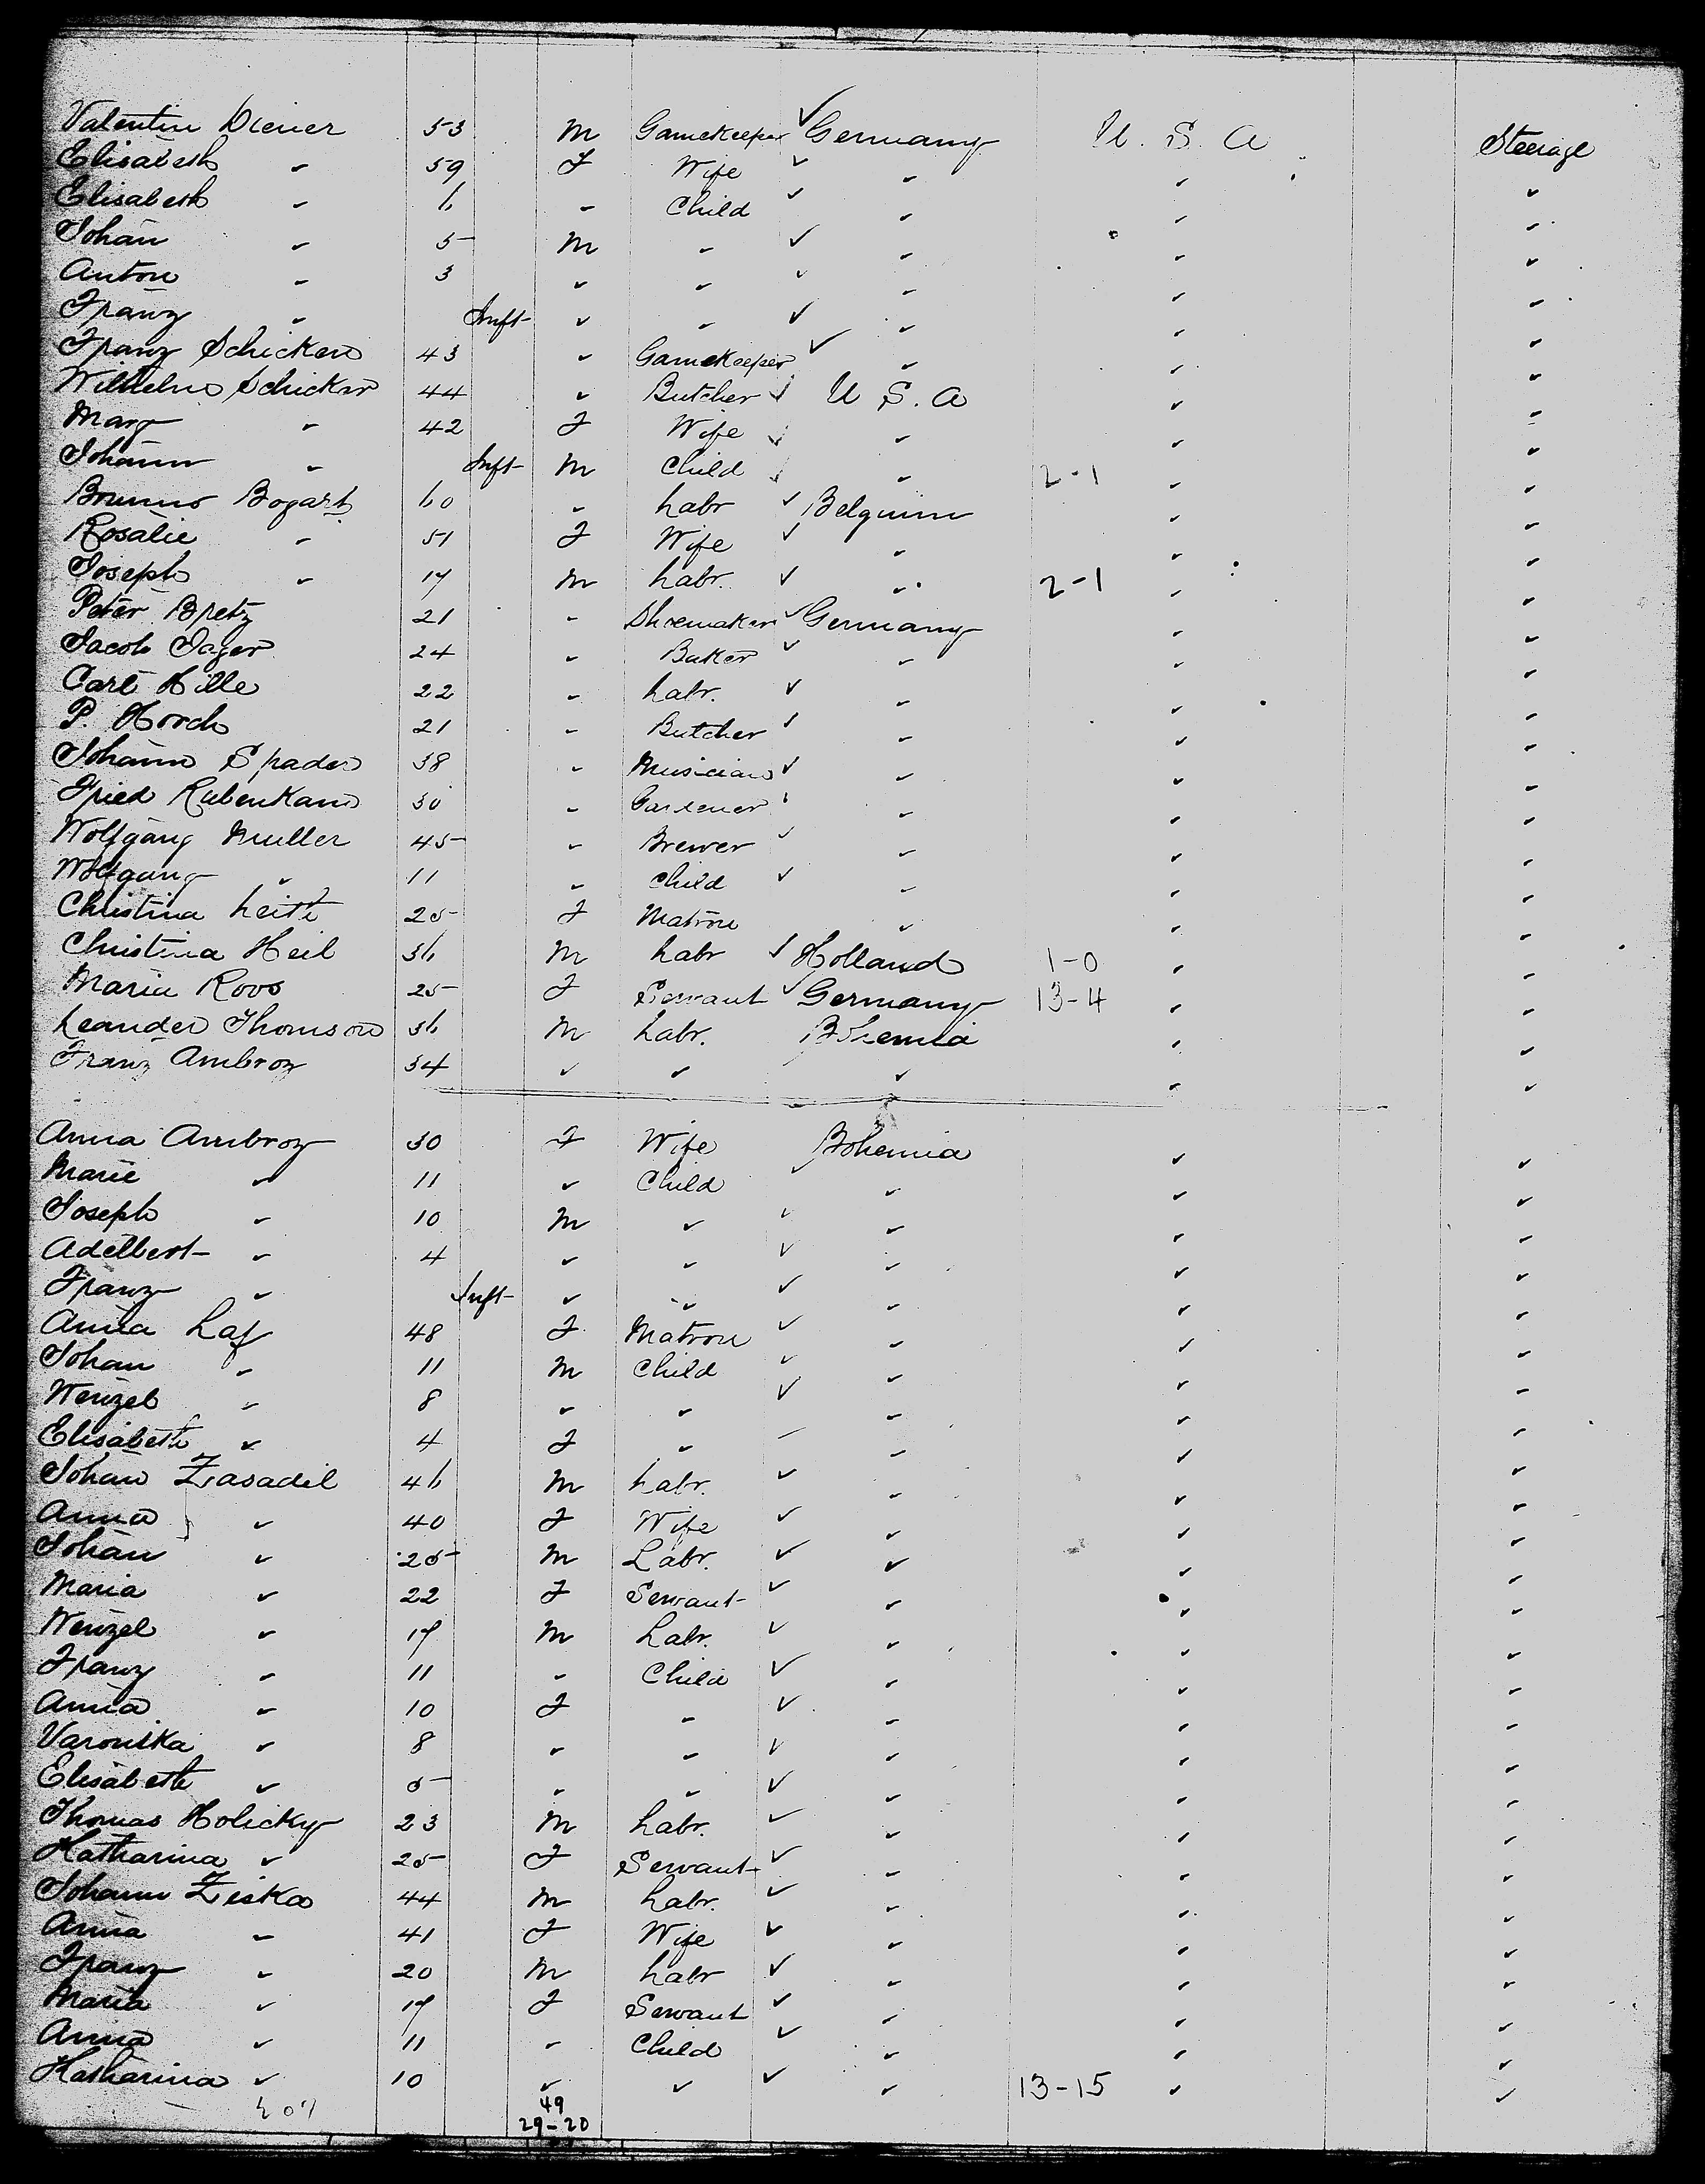 Valentin Diener 53 M Gamekeeper ✓ Germany U. S. A Steerage
Elisabeth " 59 F Wife ✓ " " "
Elisabeth " 6 " Child ✓ " " "
Johan " 5 M " ✓ " " "
Anton " 3 " " ✓ " " "
Franz " Inft " " ✓ " " "
Franz Schicker 43 " Gamekeeper ✓ " " "
Wilhelm Schicker 44 " Butcher ✓ U S. A " "
Mary " 42 F Wife ✓ " " "
Johann " Inft M Child ✓ " 2-1 " "
Brunno Bogart 60 " Labr ✓ Belguim " "
Rosalie " 51 F Wife ✓ " " "
Joseph " 17 M Labr. ✓ " 2-1 " "
Peter Bretz 21 " Shoemaker ✓ Germany " "
Jacob Jager 24 " Baker ✓ " " "
Carl Hille 22 " Labr. ✓ " " "
P. Horch 21 " Butcher ✓ " " "
Johann Spader 38 " Musician ✓ " " "
Fried Rubenkam 30 " Gardener ✓ " " "
Wolfgang Muller 45 " Brewer ✓ " " "
Wolfgang " 11 " Child ✓ " " "
Christina Leith 25 F Matron " " "
Christina Heil 36 M Labr ✓ Holland 1-0 " "
Maria Roos 25 F Servant ✓ Germany 13-4 " "
Leander Thomson 36 M Labr. Bohemia " "
Franz Ambroz 34 " " " " "
Anna Ambroz 30 F Wife Bohemia " "
Marie " 11 " Child ✓ " " "
Joseph " 10 M " ✓ " " "
Adelbert " 4 " " ✓ " " "
Franz " Inft " " ✓ " " "
Anna Laf 48 F. Matron ✓ " " "
Johan " 11 M Child ✓ " " "
Wenzel " 8 " " ✓ " " "
Elisabeth " 4 F " " " "
Johan Zasadil 46 M Labr. ✓ " " "
Anna " 40 F Wife ✓ " " "
Johan " 25 M Labr. ✓ " " "
Maria " 22 F Servant ✓ " " "
Wenzel " 17 M Labr. ✓ " " "
Franz " 11 " Child ✓ " " "
Anna " 10 F " ✓ " " "
Varonika " 8 " " ✓ " " "
Elisabeth " 5 " " ✓ " " "
Thomas Holicky 23 M Labr. ✓ " " "
Katharina " 25 F Servant ✓ " " "
Johann Ziska 44 M Labr. ✓ " " "
Anna " 41 F Wife ✓ " " "
Franz " 20 M Labr ✓ " " "
Maria " 17 F Servant ✓ " " "
Anna " 11 " Child ✓ " " "
Katharina " 10 " " ✓ " 13-15 " "
49
29-20